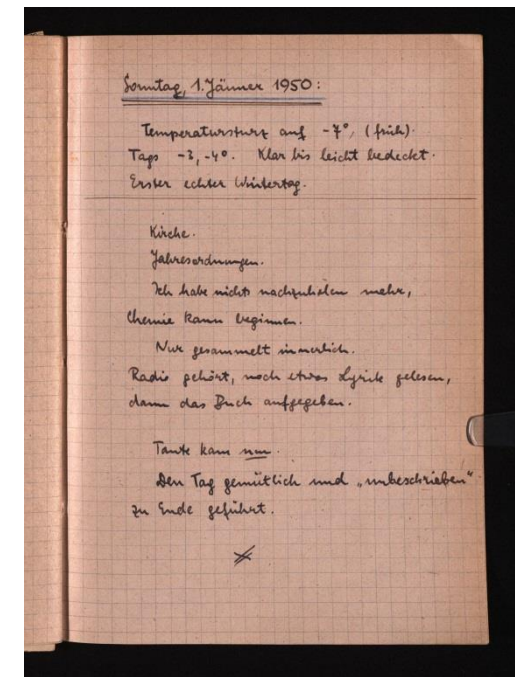 Sonntag, 1. Jänner 1950:
Temperatursturz auf -7°, (früh).
Tags -3, -4°. Klar bis leicht bedeckt.
Erster echter Wintertag.
Kirche.
Jahresordnungen.
Ich habe nichts nachzuholen mehr,
Chemie kann beginnen.
Nur gesammelt innerlich.
Radio gehört, noch etwas Lyrik gelesen,
dann das Buch aufgegeben.
Tante kam nun.
Den Tag gemütlich und „unbeschrieben"
zu Ende geführt.